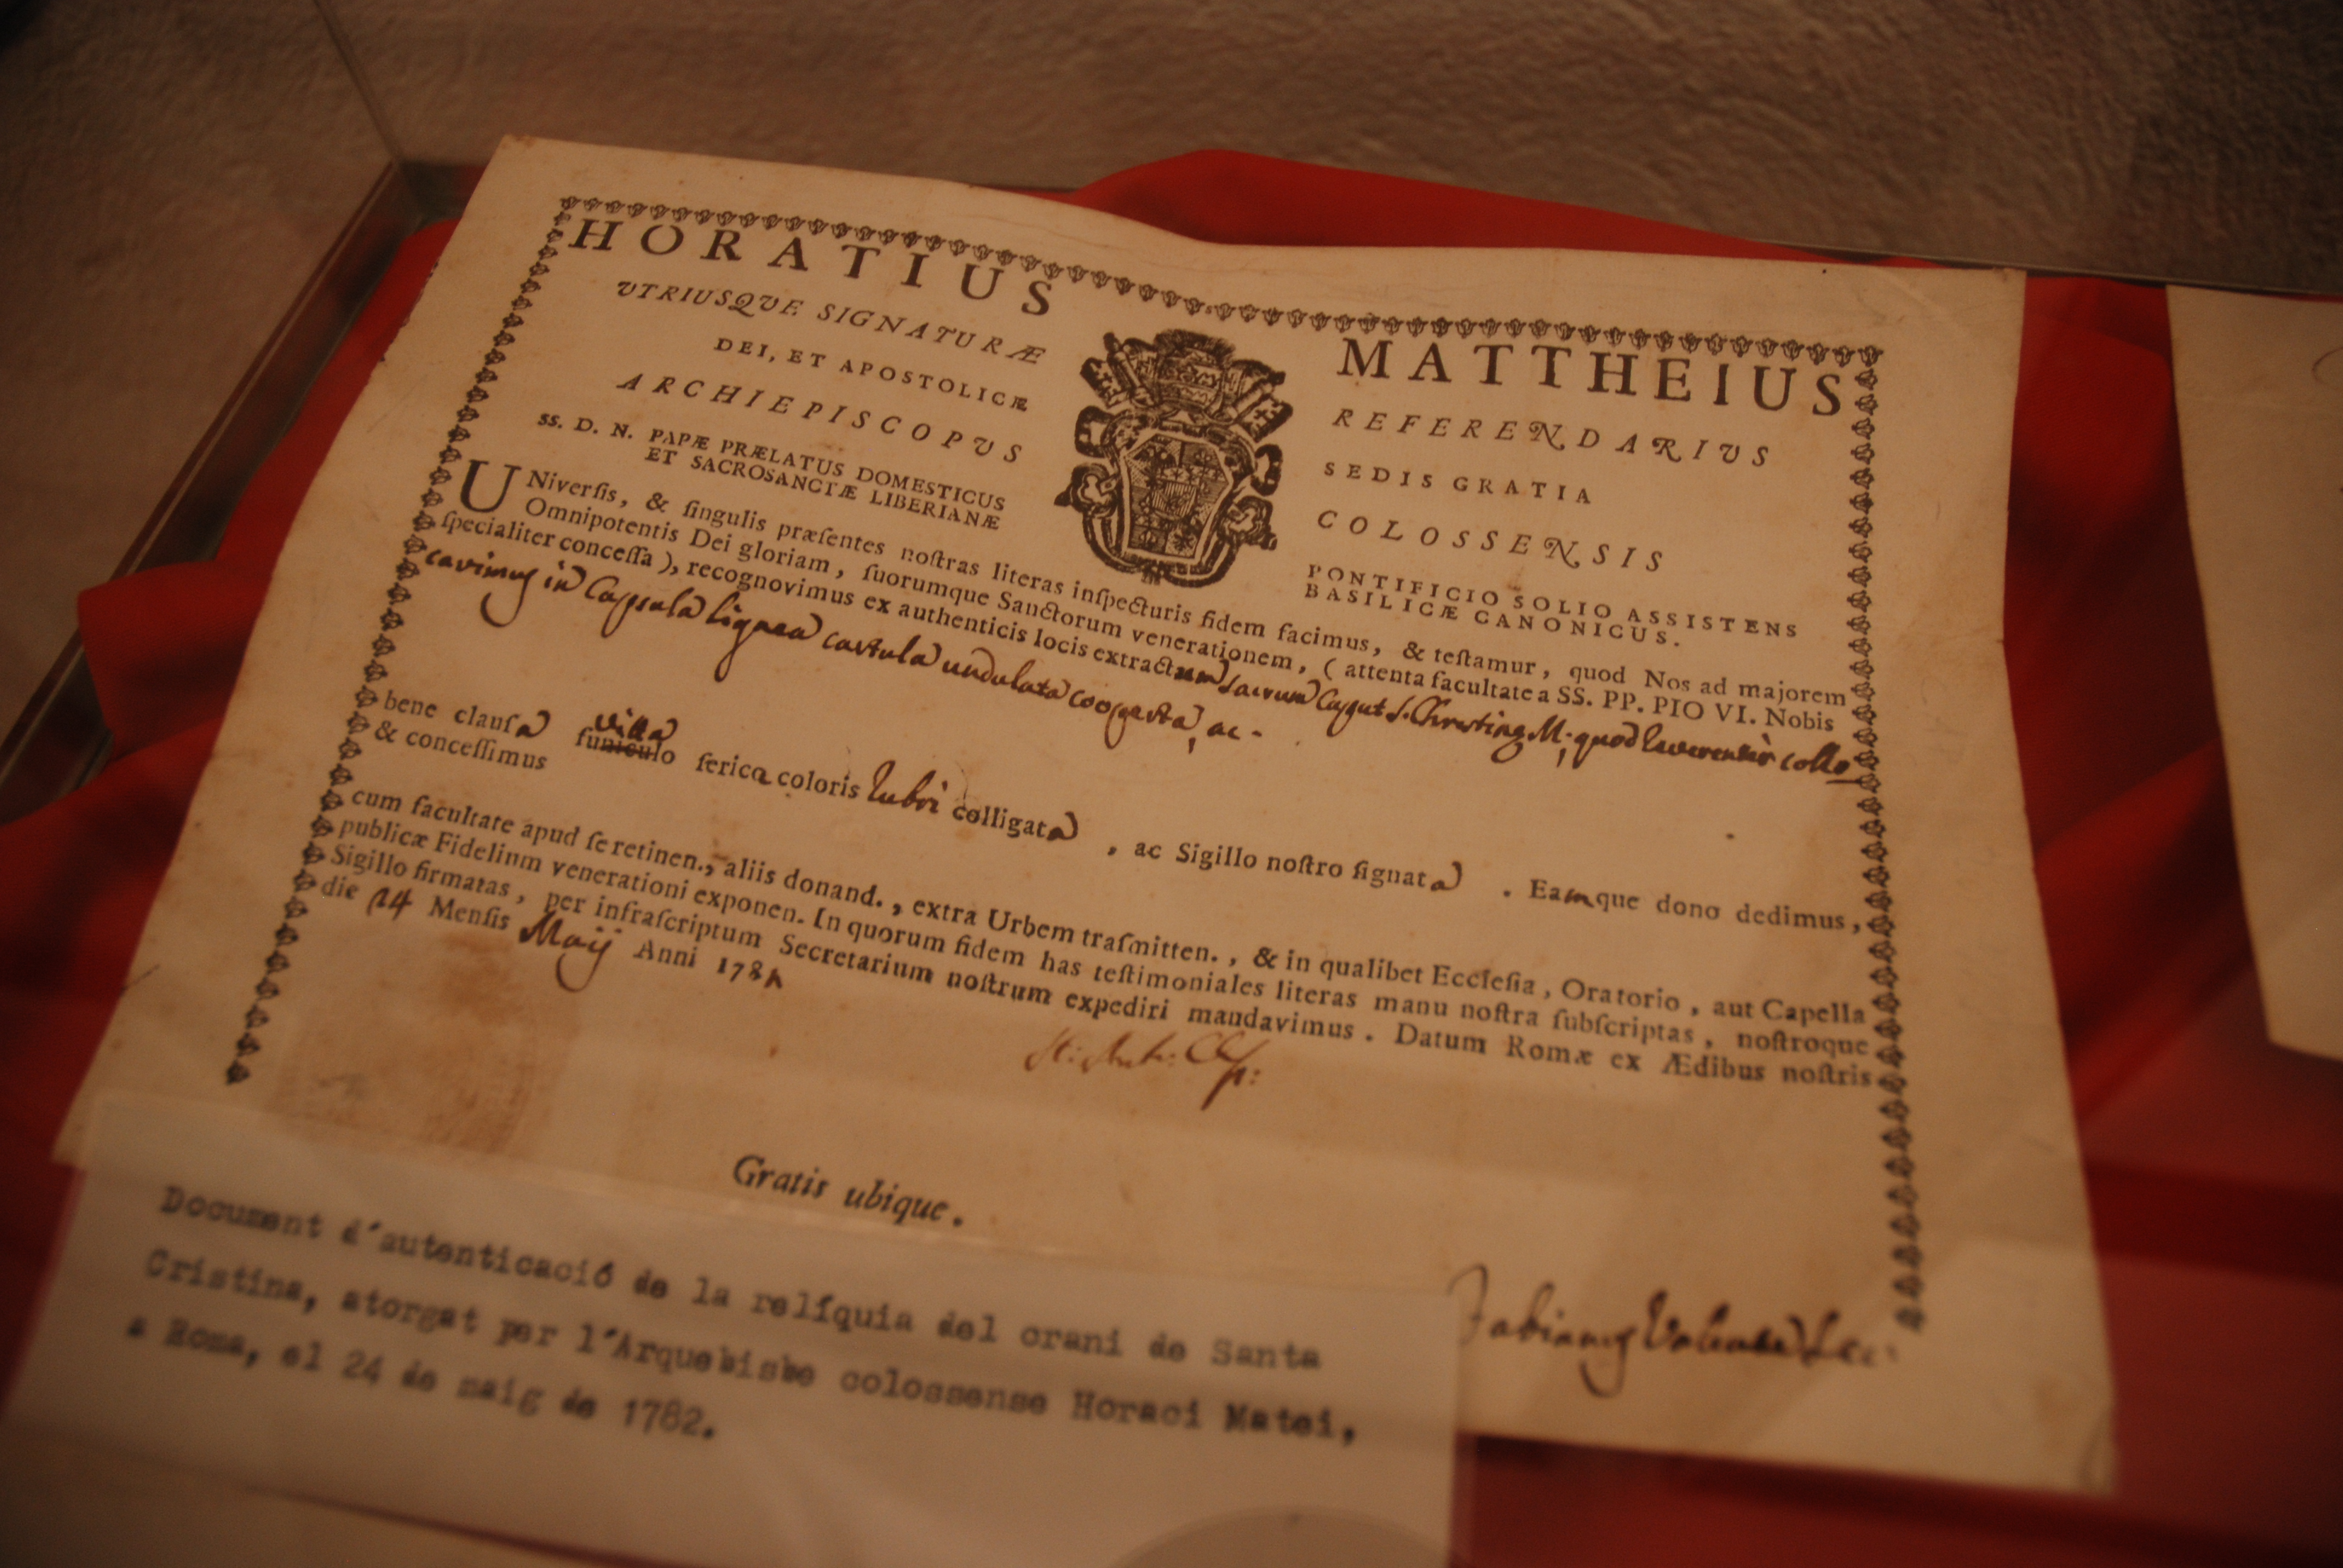 HORATIUS MATTHEIUS
UTRIUSQUE SIGNATURÆ REFERENDARIUS
DEI, ET APOSTOLICÆ SEDIS GRATIA
ARCHIEPISCOPUS COLOSSENSIS
SS. D. N. PAPÆ PRÆLATUS DOMESTICUS PONTIFICIO SOLIO ASSISTENS
ET SACROSANCTÆ LIBERIANÆ BASILICÆ CANONICUS.
UNiverſis, & ſingulis præſentes noſtras literas inſpecturis fidem facimus, & teſtamur, quod Nos ad majorem
Omnipotentis Dei gloriam, ſuorumque Sanctorum venerationem, (attenta facultate a SS. PP. PIO VI. Nobis
ſpecialiter conceſſa), recognovimus ex authenticis locis extractum sacrum Caput S. Christinæ M; quod reverenter collo
cavimus in Capsula lignea cartula undulata cooperta, ac
bene clauſa funiculo villa ſerica coloris rubri colligata, ac Sigillo noſtro ſignata. Eamque dono dedimus,
& conceſſimus
cum facultate apud ſe retinen., aliis donand., extra Urbem traſmitten., & in qualibet Eccleſia, Oratorio, aut Capella
publicæ Fidelium venerationi exponen. In quorum fidem has teſtimoniales literas manu noſtra ſubſcriptas, noſtroque
Sigillo firmatas, per infraſcriptum Secretarium noſtrum expediri mandavimus. Datum Romæ ex Ædibus noſtris
die 24 Menſis Maij Anni 1782
Gratis ubique.
Fabianus
Document d'autenticació de la relíquia del crani de Santa
Cristina, atorgat per l'Arquebisbe colossense Horaci Matei,
a Roma, el 24 de maig de 1782.